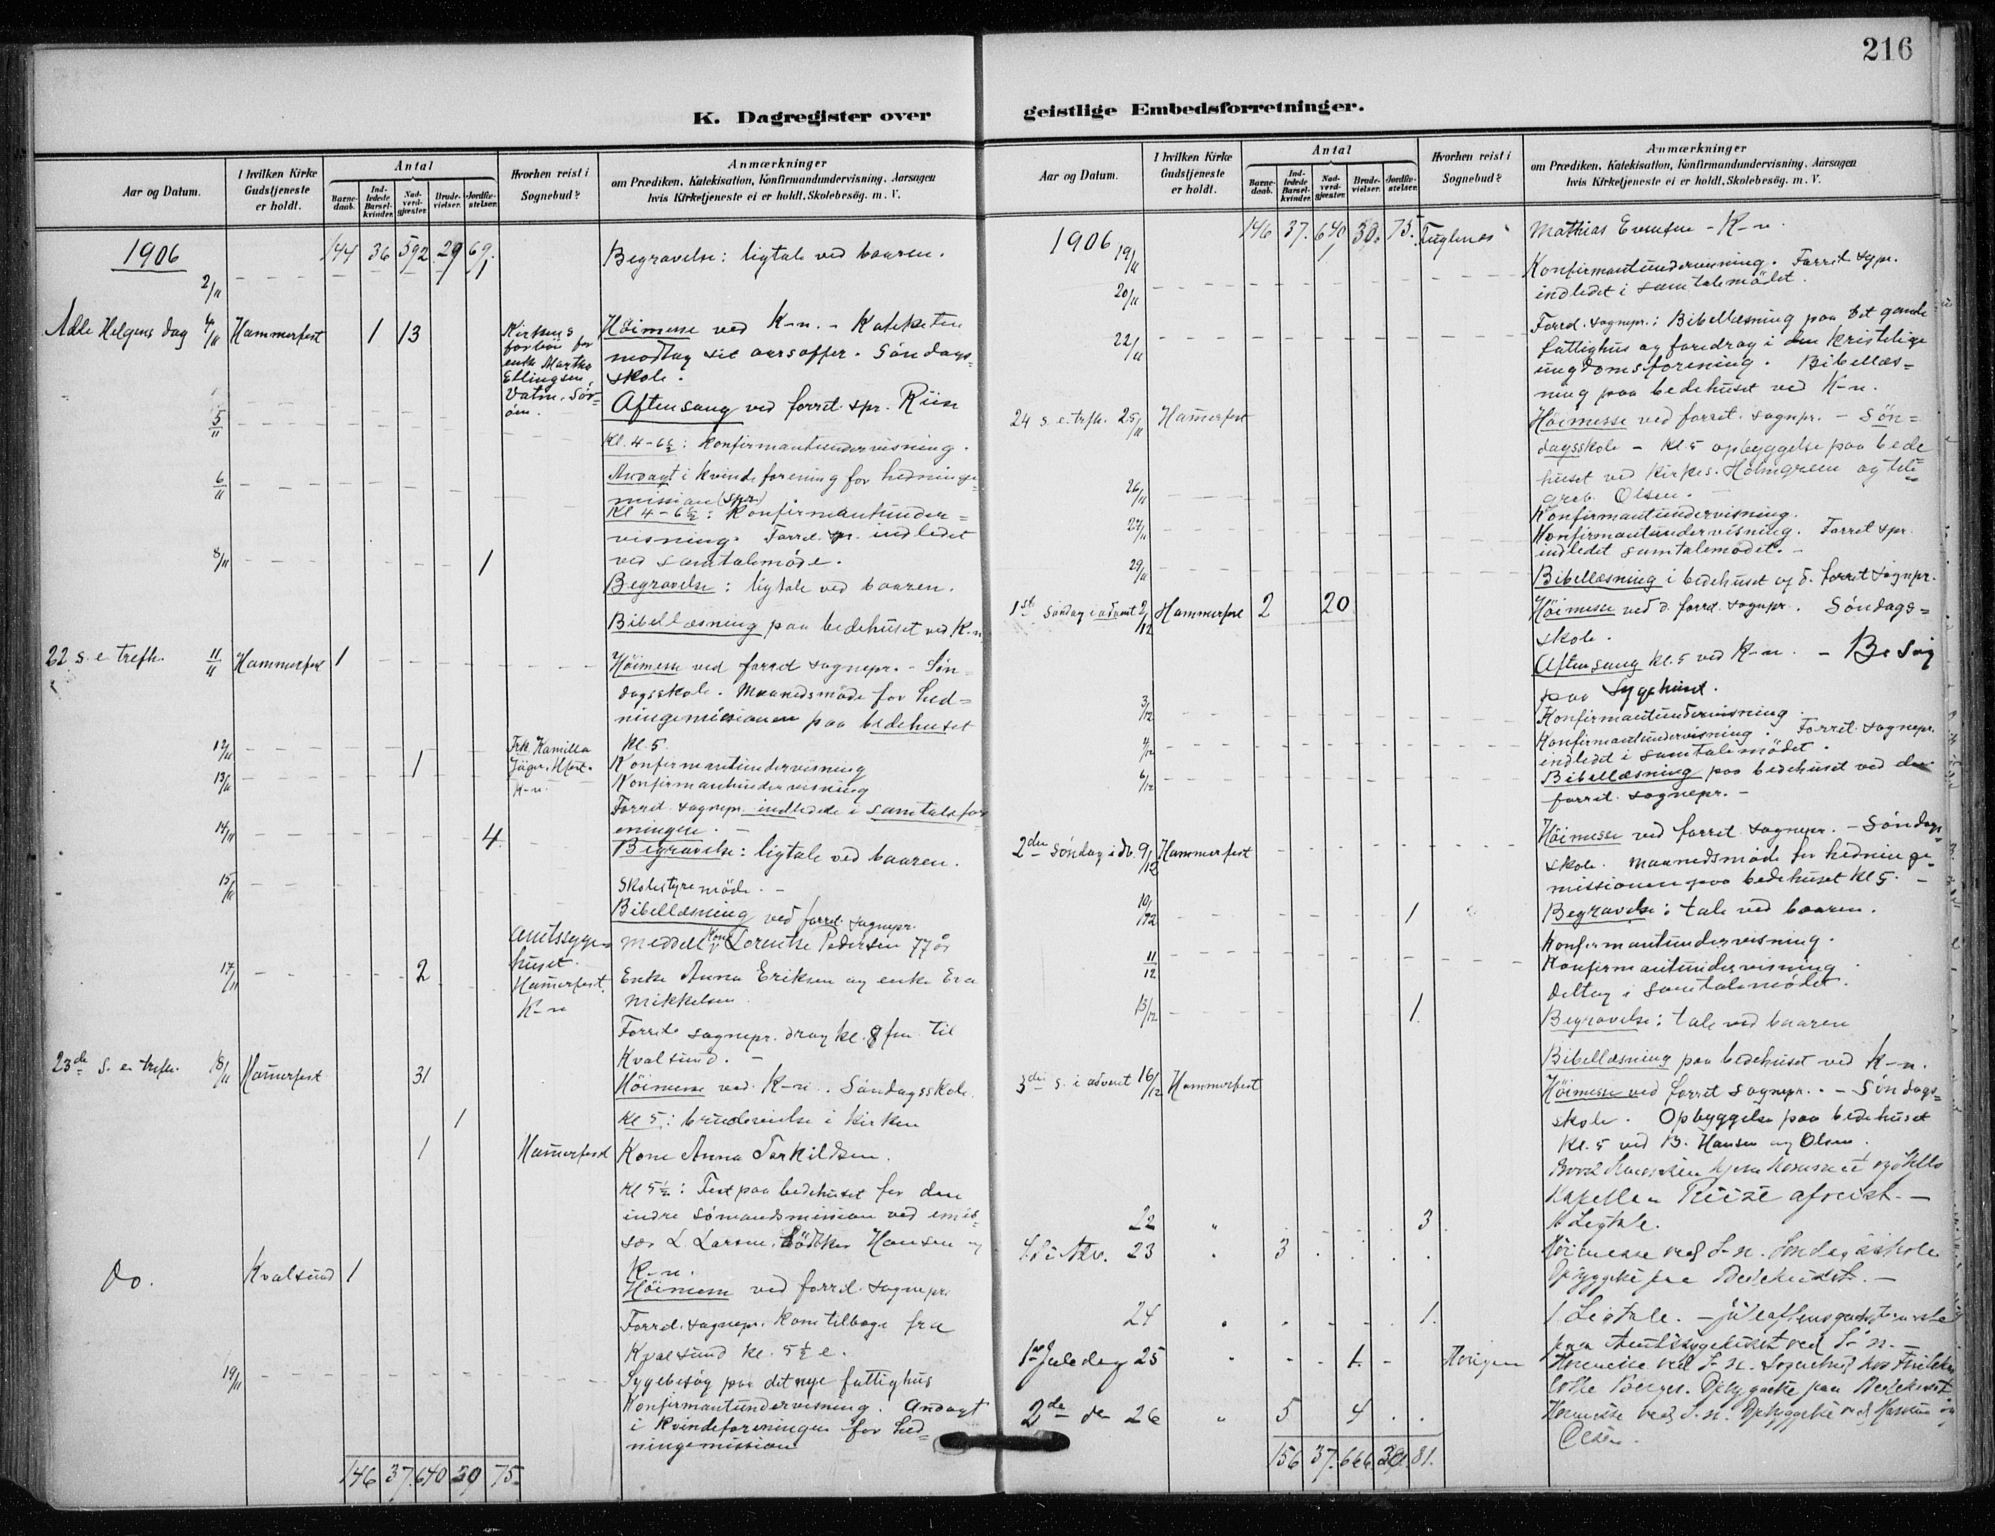 216
K. Dagregister over
Aar og Datum.
I hvilken Kirke
Gudstjeneste
er holdt.
Antal
Barne-
daab.
Ind-
ledede
Barsel-
kvinder.
Nad-
verd-
gjæster.
Brude-
vielser.
Jordfæ-
stelser.
Hvorhen reist i
Sognebud?
Anmærkninger
om Prædiken, Katekisation, Konfirmandundervisning, Aarsagen
hvis Kirketjeneste ei er holdt, Skolebesög. m. V.
1906 144 36 592 29 69. Begravelse: ligtale ved baaren.
2/11
Alle Helgens dag 4/11 Hammerfest 1 13
Kirkens
forbön for
enke Martha
Ellingsen
Høimesse ved K-n. - Kateketen
modtog sit aarsoffer. Söndags-
skole.
Aftensang ved forret. spr. Riise
5/11 Kl. 4-6½: Konfirmantundervisning.
6/11 Andagt i kvindeforening for hedninge-
mission (spr.)
Kl 4-6½: Konfirmantunder=
visning. Forret. spr. indledet
ved samtalemöde.
8/11 1 Begravelse: ligtale ved baaren.
Bibellæsning paa bedehuset ved K-n
22 s. e. trefh. 11/11 Hammerfest 1 Høimesse ved forret sognepr. - Søn-
dagsskole. Maanedsmöde for hed=
ningemissionen paa bedehuset
Kl. 5.
12/11 1 Frk Kamilla
K-n.
Konfirmantundervisning
13/11 Konfirmantundervisning
Forret. sognepr. indledede i samtalefor-
eningen.
14/11 4 Begravelse: ligtale ved baaren.
Skolestyremöde. -
15/11 Bibellæsning ved forret. sognepr.
17/11 2 Amtssyge-
huset.
Hamerfest.
K-n
meddelt Kone Lorentse Pedersen 77 år
Enke Anna Eriksen og enke Eva
Mikkelsen
Forret. sognepr. drog kl. 8 fm til
Kvalsund. -
23de S. e. trefh. 18/11 Hamerfest 31 Høimesse ved K-n. Søndagsskole.
1 Kl 5: brudevielse i kirken
1 Hamerfest Kone Anna Torkildsen.
Kl 5½: Fest paa bedehuset for den
indre sömandsmission ved emis-
sær L Larsen, Hansen og
K-n.
Do. Kvalsund 1 Høimesse ved forret. sognepr.
Forret. sognepr. kom tilbage fra
Kvalsund kl. 5½ e.
19/11 Sygebesøg paa det nye fattighus
Konfirmantundervisning. Andagt
i kvindeforeningen for hed=
ningemission
146 37. 640 30 75.
geistlige Embedsforretninger.
Aar og Datum.
I hvilken Kirke
Gudstjeneste
er holdt.
Antal
Barne-
daab.
Ind-
ledede
Barsel-
kvinder.
Nad-
verd-
gjæster.
Brude-
vielser.
Jordfæ-
stelser.
Hvorhen reist i
Sognebud?
Anmærkninger
om Prædiken, Katekisation, Konfirmandundervisning, Aarsagen
hvis Kirketjeneste ei er holdt, Skolebesög. m. V.
1906 19/11 146 37. 640 30. 75. Fuglenes Mathias Evensen - K-n.
20/11 Konfirmantundervisning. Forret sgpr.
indledet i samtalemödet.
22/11 Forret. sognepr.: Bibellæsning paa det gamle
fattighus og foredrag i den kristelige
ungdomsforening. Bibellæs=
ning paa bedehuset ved K-n.
24 s. e. trfh. 25/11 Hamerfest Höimesse ved forret. sognepr. - Søn-
dagsskole - Kl. 5 opbyggelse paa bede
huset ved kirkes. Holmgreen og tele
grab. Olsen.
26/11 Konfirmantundervisning.
27/11 Konfirmantundervisning. Forret spr.
indledet samtalemödet. -
29/11 Bibellæsning i bedehuset af d. forret sognepr.
1st Søndag i advent 2/12 Hammerfest 2 20 Höimesse ved d. forret. sognepr. Söndags=
skole.
Aftensang kl. 5 ved K-n. - Besög
paa Sygehuset.
3/12 Konfirmantundervisning.
4/12 Konfirmantundervisning. Forret. sognepr.
indledet i samtalemödet.
6/12 Bibellæsning paa bedehuset ved den
forret. sognepr. -
2den Søndag i Adv. 9/12 Hammerfest Höimesse ved forret sognepr. - Søndags-
skole. Maanedsmöde for hedninge-
missionen paa bedehuset kl 5. -
10/12 1 Begravelse: tale ved baaren.
Konfirmantundervisning.
11/12 Konfirmantundervisning
Deltog i samtalemödet.
13/12 1. Begravelse: tale ved baaren
Bibellæsning paa bedehuset ved K-n.
3die S. i advent 16/12 Hammerfest Höimesse ved forret sognepr. - Söndags=
skole. Opbyggelse paa bedehuset
Kl. 5 ved B. Hansen og Olsen.
hjemkommet og
Kapellan Riise afreist. -
22 " 3 1 Ligtale.
4 S i Adv. 23 " 3 Høimesse ved S-n. Søndagsskole
Opbyggelse paa Bedehuset. -
24 " 1. 1 Ligtale. - juleaftensgudstjeneste
paa Amtssygehuset ved S-n. -
1ste Juledag 25 " 1. Høimesse ved S-n. Sognebud hos
Opbyggelse paa Bedehuset
2de do 26 " 5 4 Høimesse ved S-n. Opbyggelse ved Hansen og
Olsen.
156 37. 666 30. 81.